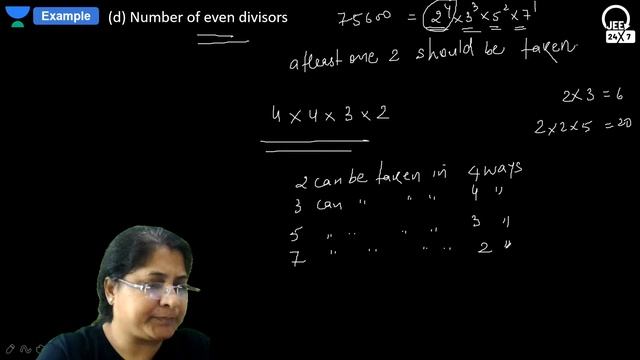 Example (d) Number of even divisors
75600 = 2⁴ × 3³ × 5² × 7¹
JEE
24X7
atleast one 2 should be taken
2 × 3 = 6
2 × 2 × 5 = 20
4 × 4 × 3 × 2
2 can be taken in 4 ways
3 can " " " 4 "
5 " " " " 3 "
7 " " " " 2 "